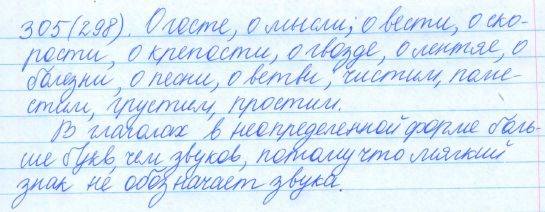 305(298). О госте, о мысли, о вести, о ско-
рости, о крепости, о гвозде, о лентяе, о
болезни, о песни, о ветви, чистим, поме-
стим, грустим, простим.
В глаголах в неопределенной форме боль-
ше букв, чем звуков, потому что мягкий
знак не обозначает звука.